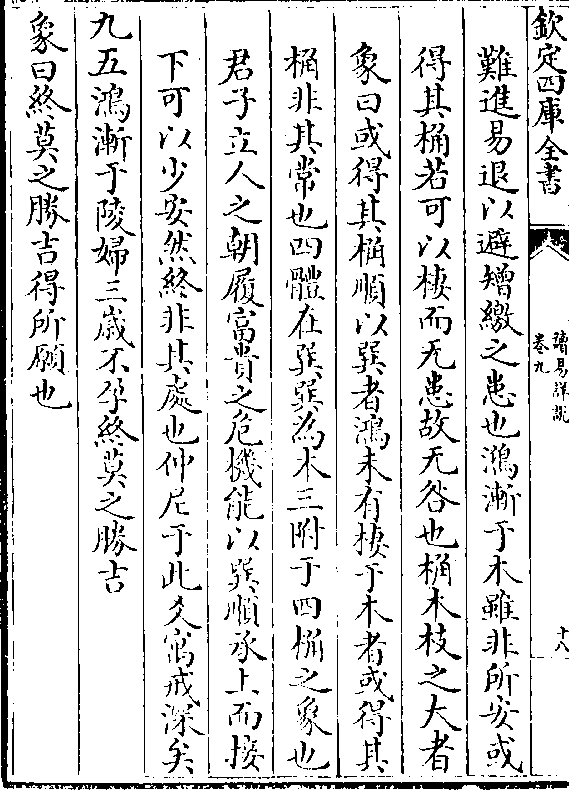 欽定四庫全書
讀易詳說
卷九
十八
難進易退以避矰繳之患也鴻漸于木雖非所安或
得其桷若可以棲而无患故无咎也桷木枝之大者
象曰或得其桷順以巽者鴻未有棲于木者或得其
桷非其常也四體在巽巽為木三附于四桷之象也
君子立人之朝履富貴之危機能以巽順承上而接
下可以少安然終非其處也仲尼于此爻寓戒深矣
九五鴻漸于陵婦三歲不孕終莫之勝吉
象曰終莫之勝吉得所願也